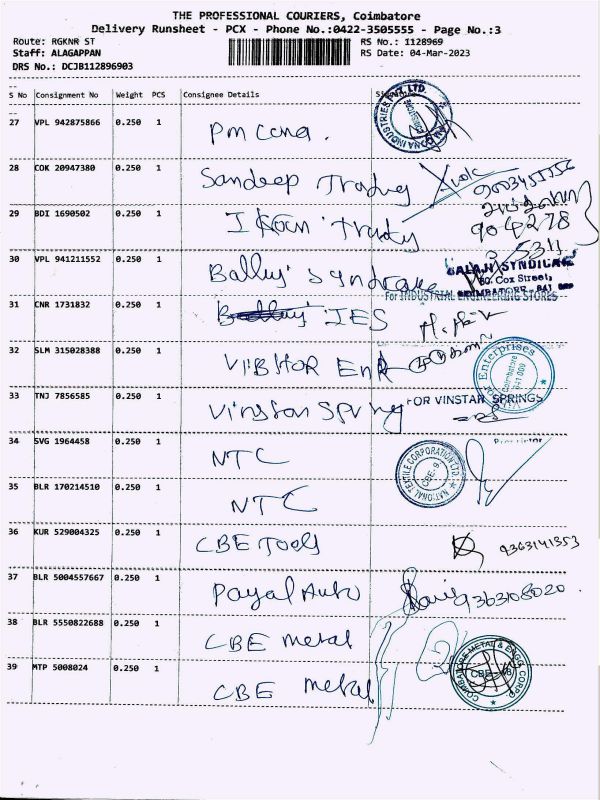 THE PROFESSIONAL COURIERS, Coimbatore
Delivery Runsheet - PCX - Phone No.:0422-3505555 - Page No.:3
Route: RGKNR ST RS No.: 1128969
Staff: ALAGAPPAN RS Date: 04-Mar-2023
DRS No.: DCJB112896903
S No Consignment No Weight PCS Consignee Details
27 VPL 942875866 0.250 1 Pm Cona.
28 COK 20947380 0.250 1 Sandeep Trading
29 BDI 1690502 0.250 1 Trading
904278
30 VPL 941211552 0.250 1 BALAJI SYNDICATE
80. Cox Street,
COIMBATORE - 641
For INDUSTRIAL ENGINEERING STORES
31 CNR 1731832 0.250 1 IES
32 SLM 315028388 0.250 1 VIBHOR Enp
Enterprises
Coimbatore
33 TNJ 7856585 0.250 1 Vinstan Spring
FOR VINSTAR SPRINGS
Proprietor
34 SVG 1964458 0.250 1 NTC
NATIONAL TEXTILE CORPORATION LTD.
CBE-9
35 BLR 170214510 0.250 1 NTC
36 KUR 529004325 0.250 1 CBE Tools 9363141353
37 BLR 5004557667 0.250 1 Payal Auto 9363108020
38 BLR 5550822688 0.250 1 CBE metal
39 MTP 5008024 0.250 1 CBE metal
COIMBATORE METAL & ENGG. CORPN